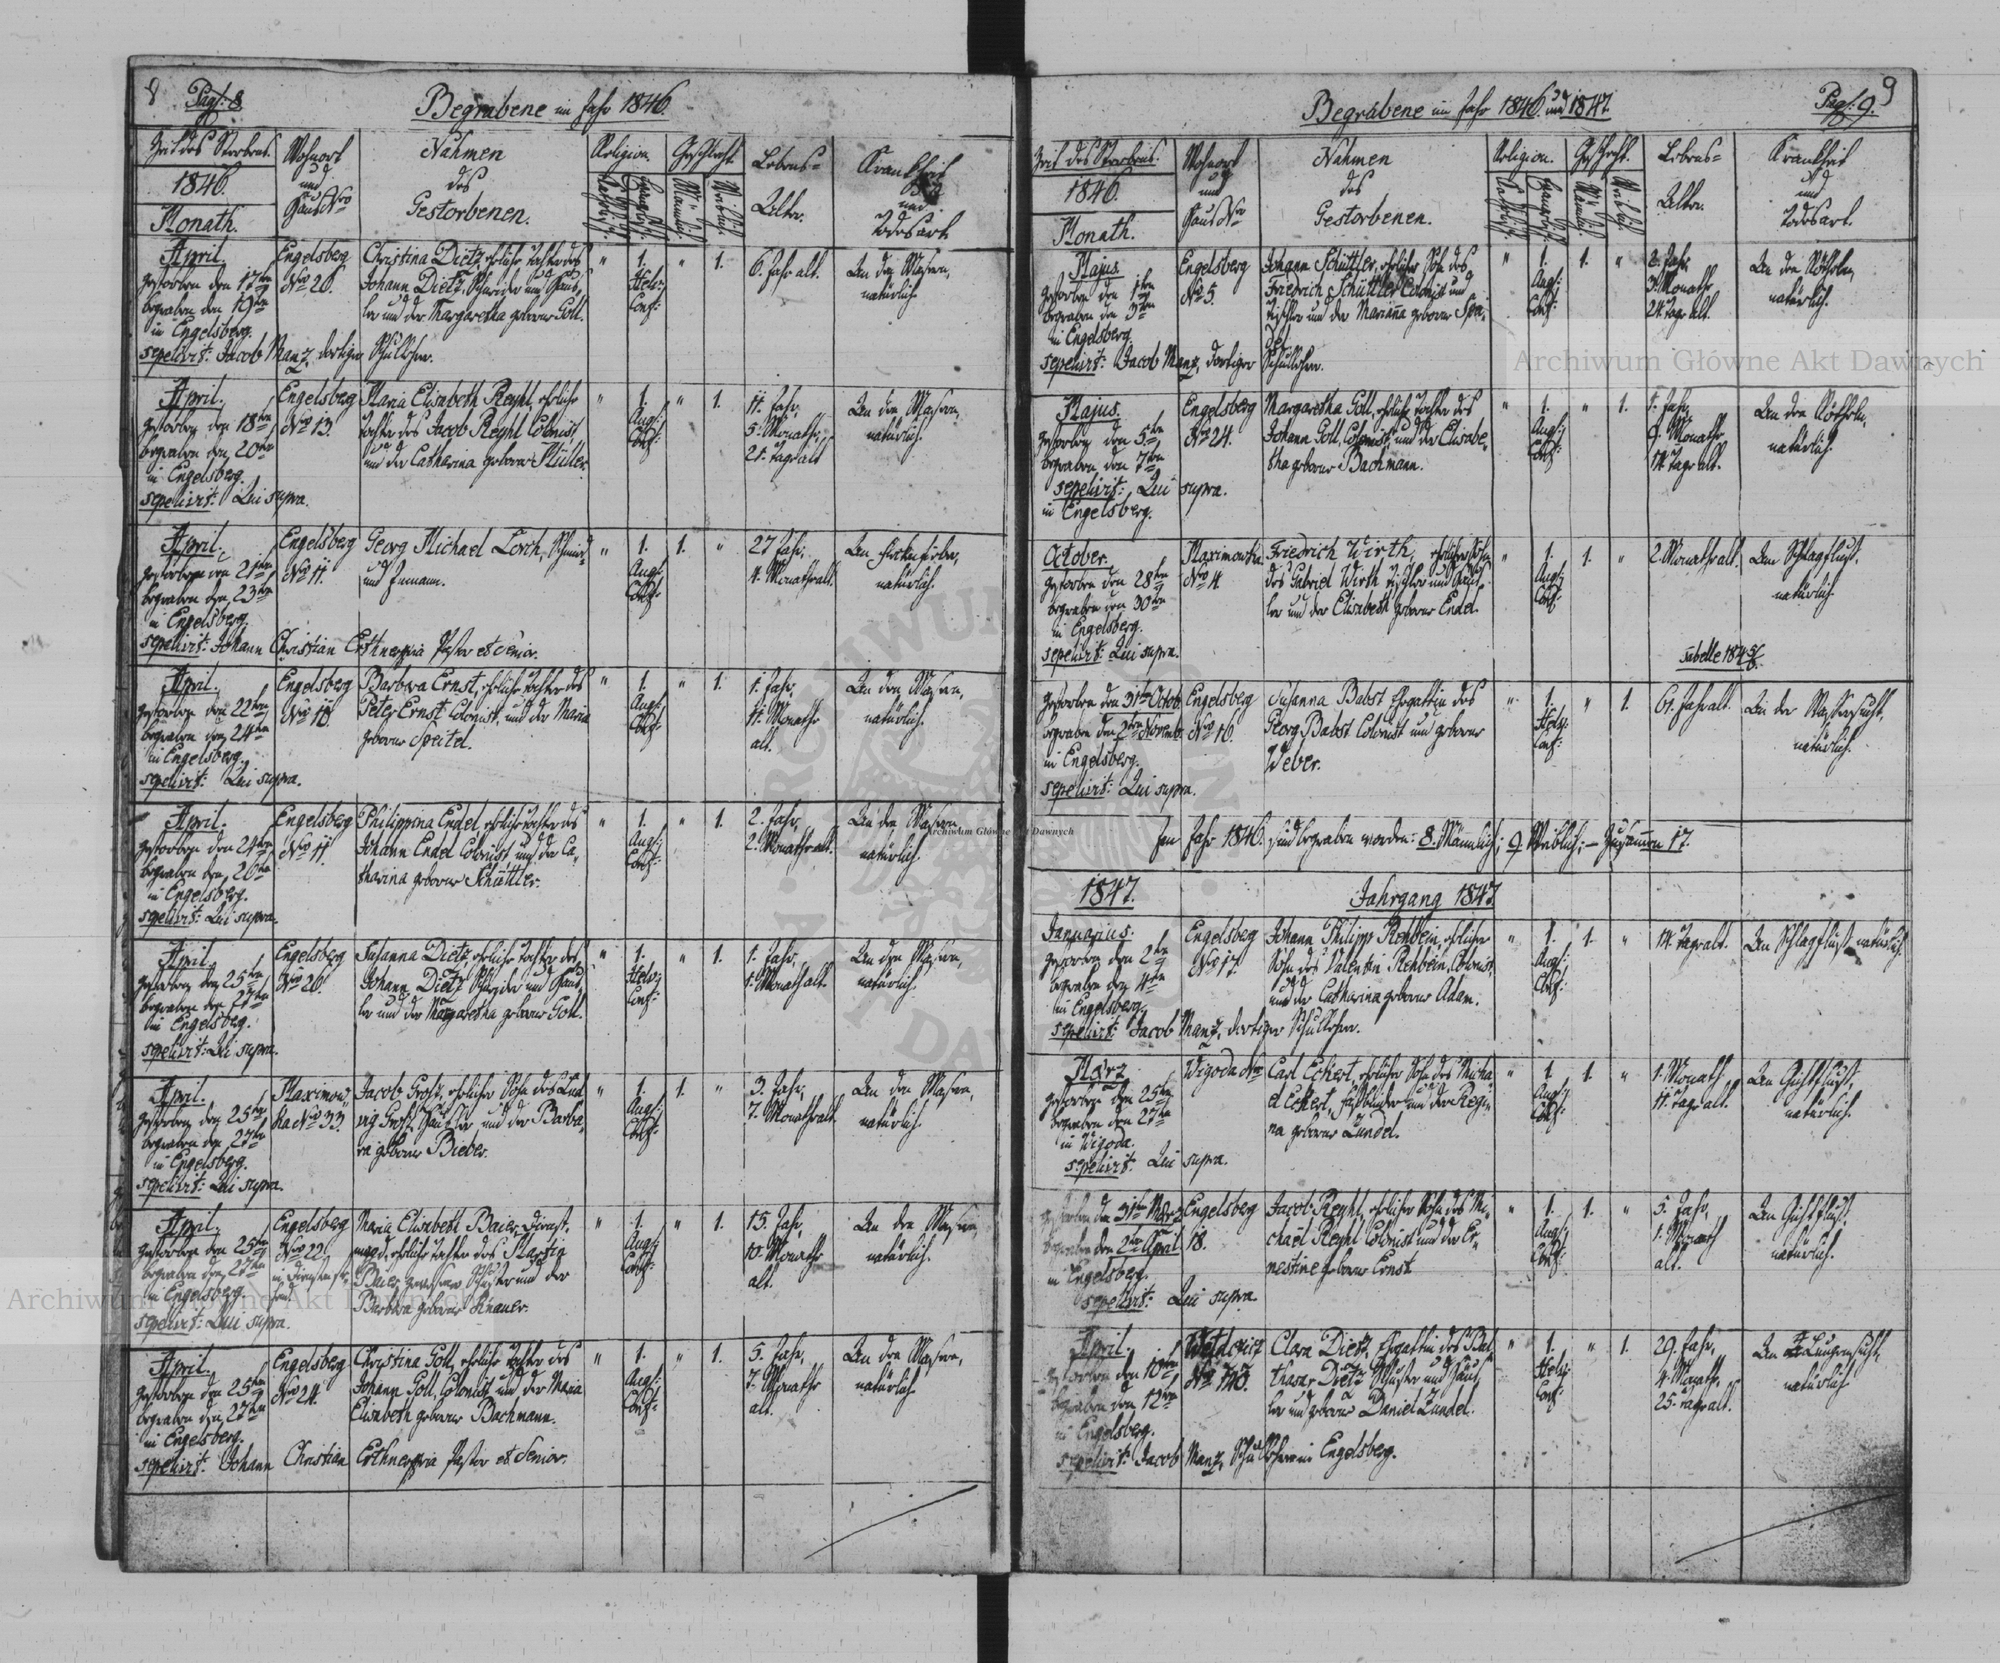 8 Pag: 8
Begrabene im Jahr 1846.
Zeit des Sterbens.
1846.
Monath.
Wohnort
und
Haus Nro
Nahmen
des
Gestorbenen.
Religion.
Geschlecht
Männlich
Weiblich
Lebens=
Alter.
Krankheit
und
Todesart
April.
gestorben den 17ten
begraben den 19ten
in Engelsberg.
Engelsberg
Nro 26.
Christina Dietz, ehliche Tochter des
Johann Dietz, Schneider und Häus=
ler und der Margaretha geborne Goll.
" 1. " 1.
Helv:
Conf:
6. Jahr alt.
An den Masern,
natürlich.
sepelivit: Jacob Manz, dortiger Schullehrer.
April.
gestorben den 18ten
begraben den 20ten
in Engelsberg.
Engelsberg
Nro 13.
Maria Elisabeth Reyhl, ehliche
Tochter des Jacob Reyhl Colonist
und der Catharina geborne Müller.
" 1. " 1.
Aug:
Conf:
11. Jahr,
5. Monathe,
21. Tage alt
An den Masern,
natürlich.
sepelivit: Qui supra.
April.
gestorben den 21ten
begraben den 23ten
in Engelsberg.
Engelsberg
Nro 11.
Georg Michael Lorch, Schmied
und Inmann.
" 1. 1. "
Aug:
Conf:
27 Jahr,
4. Monathe alt.
natürlich.
sepelivit: Johann Christian Pastor et Senior.
April.
gestorben den 22ten
begraben den 24ten
in Engelsberg.
Engelsberg
Nro 10.
Barbara Ernst, ehliche Tochter des
Peter Ernst Colonist, und der Maria
geborne Speitel.
" 1. " 1.
Aug:
Conf:
1. Jahr,
11. Monathe
alt.
An den Masern,
natürlich.
sepelivit: Qui supra.
April.
gestorben den 24ten
begraben den 26ten
in Engelsberg.
Engelsberg
Nro 11.
Philippina Endel, ehliche Tochter des
Johann Endel Colonist und der Ca=
tharina geborne Schüttler.
" 1. " 1.
Aug:
Conf:
2. Jahr,
2. Monathe alt.
An den Masern
natürlich.
sepelivit: Qui supra.
April.
gestorben den 25ten
begraben den 27ten
in Engelsberg.
Engelsberg
Nro 26.
Susanna Dietz, ehliche Tochter des
Johann Dietz Schneider und Häus=
ler und der Margaretha geborne Goll.
" 1. " 1.
Helv:
Conf:
1. Jahr,
1. Monath alt.
An den Masern,
natürlich.
sepelivit: Qui supra.
April.
gestorben den 25ten
begraben den 27ten
in Engelsberg.
Maximow=
ka Nro 33.
Jacob Groß, ehlicher Sohn des Lud=
wig Groß, Häusler, und der Barba=
ra geborne Bieber.
" 1. 1. "
Aug:
Conf:
3. Jahr,
7. Monathe alt.
An den Masern,
natürlich.
sepelivit: Qui supra.
April.
gestorben den 25ten
begraben den 27ten
in Engelsberg.
Engelsberg
Nro 22.
Maria Elisabeth Baier, Dienst=
magd, ehliche Tochter des Martin
Baier, gewesener Schuster und der
Barbara geborne Knauer.
" 1. " 1.
Aug:
Conf:
15. Jahr,
10. Monathe
alt.
An den Masern,
natürlich.
sepelivit: Qui supra.
April.
gestorben den 25ten
begraben den 27ten
in Engelsberg.
Engelsberg
Nro 24.
Christina Goll, ehliche Tochter des
Johann Goll, Colonist, und der Maria
Elisabeth geborne Bachmann.
" 1. " 1.
Aug:
Conf:
5. Jahr,
7. Monathe
alt.
An den Masern,
natürlich.
sepelivit: Johann Christian Pastor et Senior.
Begrabene im Jahr 1846. und 1847.
Pag: 9. 9
Zeit des Sterbens.
1846.
Monath.
Wohnort
und
Haus Nro
Nahmen
des
Gestorbenen.
Religion.
Geschlecht.
Männlich
Weiblich
Lebens=
Alter.
Krankheit
und
Todesart.
Majus.
gestorben den 1ten
begraben den 3ten
in Engelsberg.
Engelsberg
Nro 5.
Johann Schüttler, ehlicher Sohn des
Friedrich Schüttler Colonist und
Tischler und der Marianna geborne
" 1. 1. "
Aug:
Conf:
2. Jahr,
3. Monathe
24. Tage alt.
An den Rötheln,
natürlich.
sepelivit: Jacob Manz, dortiger Schullehrer.
Majus.
gestorben den 5ten
begraben den 7ten
Engelsberg
Nro 24.
Margaretha Goll, ehliche Tochter des
Johann Goll, Colonist, und der Elisabe=
tha geborne Bachmann.
" 1. " 1.
Aug:
Conf:
1. Jahr,
9. Monathe
14. Tage alt.
An den Rötheln,
natürlich.
sepelivit: Qui supra.
in Engelsberg.
October.
gestorben den 28ten
begraben den 30ten
in Engelsberg.
Maximowka
Nro 4.
Friedrich Wirth, ehlicher Sohn
des Gabriel Wirth, Tischler und Häus=
ler und der Elisabeth geborne Endel.
" 1. 1. "
Aug:
Conf:
2. Monathe alt.
Am Schlagfluß,
natürlich.
sepelivit: Qui supra.
Tabelle 1845/6.
gestorben den 31ten Octob.
begraben den 2ten Novemb.
in Engelsberg.
Engelsberg
Nro 16.
Susanna Babst Ehgattin des
Georg Babst Colonist und geborne
Weber.
" 1. " 1.
Helv:
Conf:
61. Jahr alt.
An der Wassersucht,
natürlich.
sepelivit: Qui supra.
Im Jahr 1846. sind begraben worden: 8. Männlich; 9 Weiblich; – Zusammen 17.
1847.
Jahrgang 1847.
Januarius.
gestorben den 2ten
begraben den 4ten
in Engelsberg.
Engelsberg
Nro 17.
Johann Philipp Rehbein, ehlicher
Sohn des Valentin Rehbein, Colonist,
und der Catharina geborne Adam.
" 1. 1. "
Aug:
Conf:
14. Tage alt.
Am Schlagfluß, natürlich.
sepelivit: Jacob Manz, dortiger Schullehrer.
März
gestorben den 25ten
begraben den 27ten
in Wigoda.
Wigoda Nro
Carl Eckert, ehlicher Sohn des Micha=
el Eckert, Faßbinder und der Regi=
na geborne Lundel.
" 1. 1. "
Aug:
Conf:
1. Monath
11. Tage alt.
Am Gichtfluß,
natürlich.
sepelivit: Qui supra.
gestorben den 31ten März
begraben den 2ten April
in Engelsberg.
Engelsberg
18.
Jacob Reyhl, ehlicher Sohn des Mi=
chael Reyhl Colonist und der Er=
nestine geborne Ernst
" 1. 1. "
Aug:
Conf:
5. Jahr,
1. Monath
alt.
Am Gichtfluß,
natürlich.
sepelivit: Qui supra.
April.
gestorben den 10ten
begraben den 12ten
in Engelsberg.
Nro 143.
Clara Dietz, Ehgattin des Bal=
thasar Dietz Schuster und Häus=
ler und geborne Daniel Lundel.
" 1. " 1.
Helv:
Conf:
29. Jahr,
4. Monathe,
25. Tage alt.
An Lungensucht,
natürlich
sepelivit: Jacob Manz, Schullehrer in Engelsberg.
Archiwum Główne Akt Dawnych
Archiwum Główne Akt Dawnych
Archiwum Główne Akt Dawnych